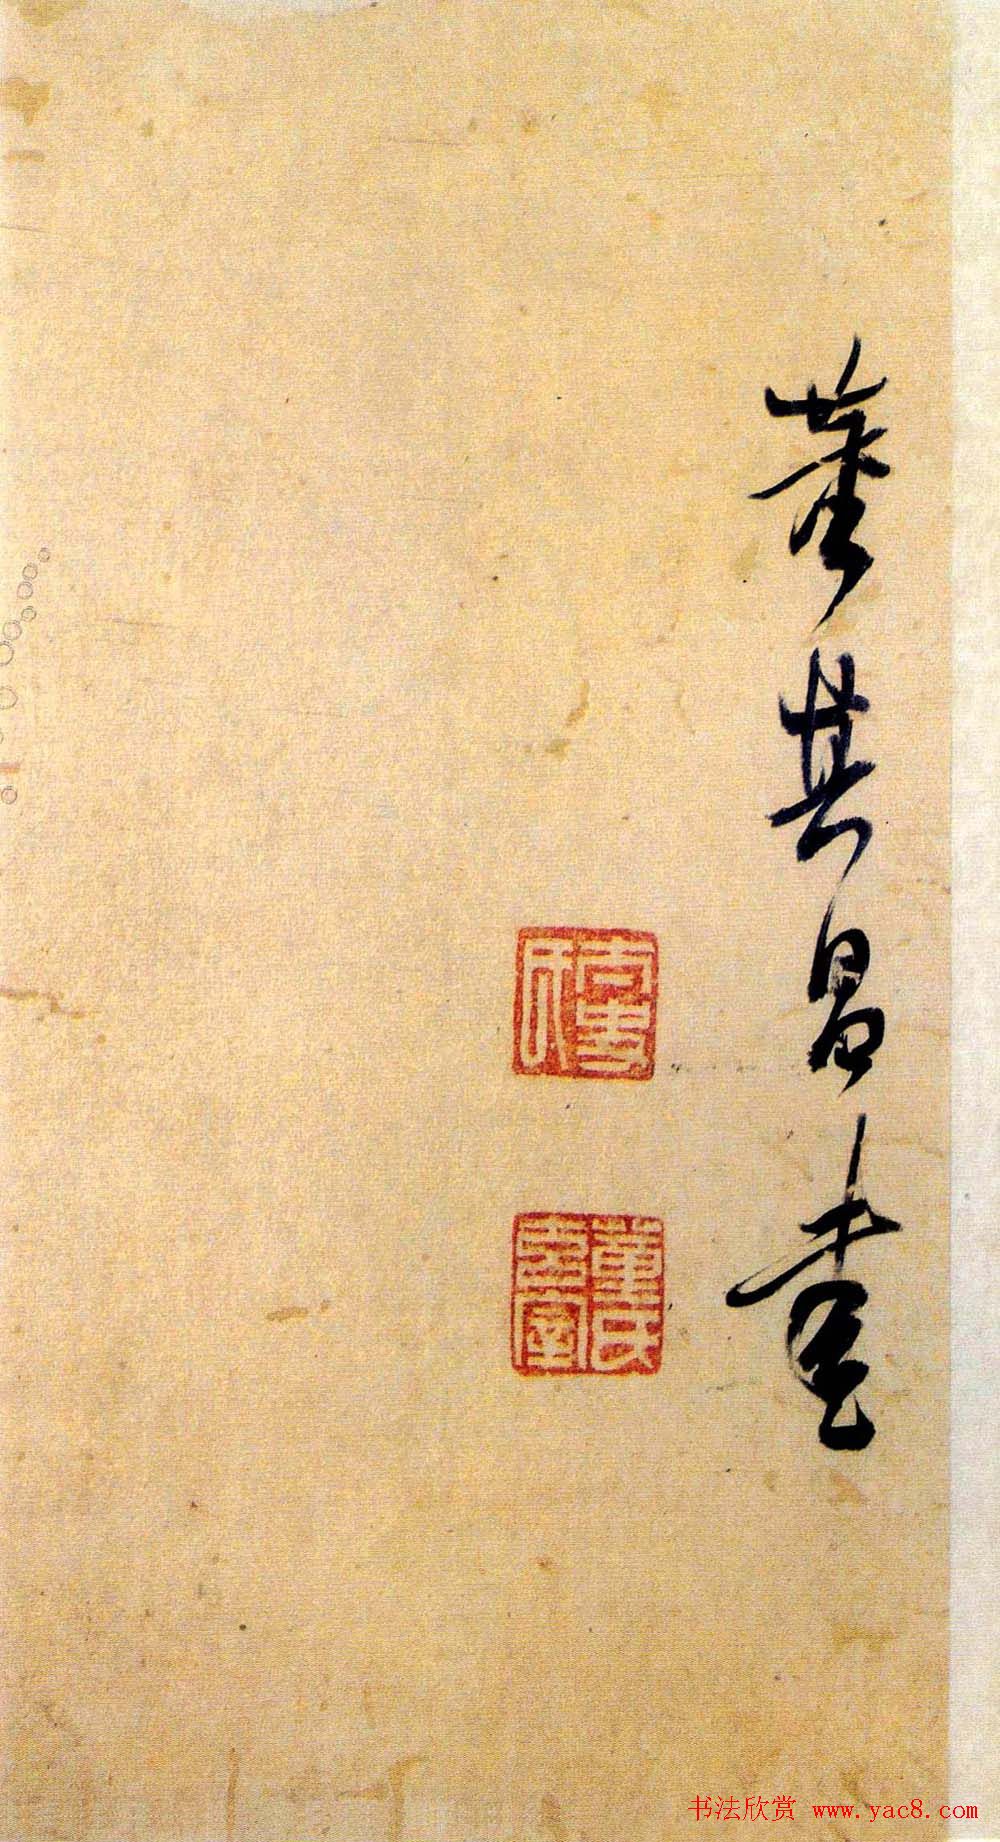 董其昌書
董氏
玄宰
书法欣赏 www.yac8.com